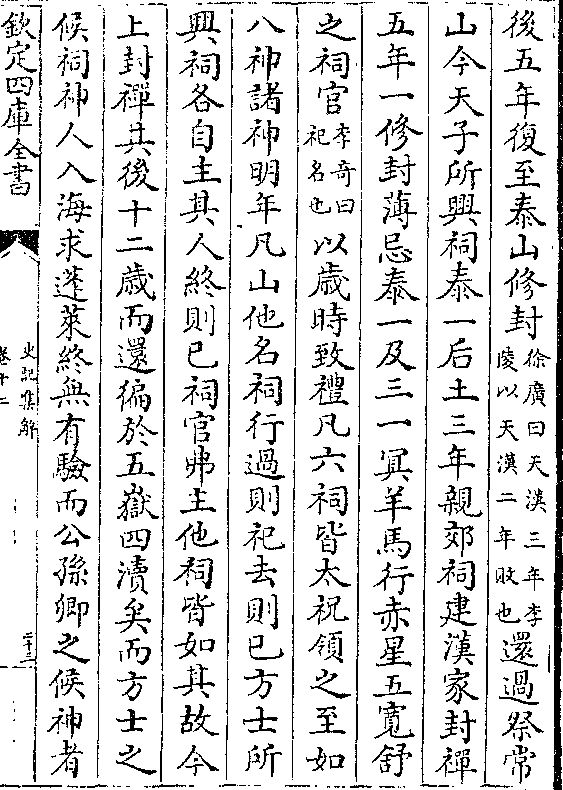 後五年復至泰山修封徐廣曰天漢三年李陵以天漢二年敗也還過祭常
山今天子所興祠泰一后土三年親郊祠建漢家封禪
五年一修封薄忌泰一及三一冥羊馬行赤星五寬舒
之祠官李奇曰祀名也以歲時致禮凡六祠皆太祝領之至如
八神諸神明年凡山他名祠行過則祀去則已方士所
興祠各自主其人終則已祠官弗主他祠皆如其故今
上封禪其後十二歲而還徧於五嶽四瀆矣而方士之
候祠神人入海求蓬萊終無有驗而公孫卿之候神者
欽定四庫全書
史記集解
卷十二
二十三